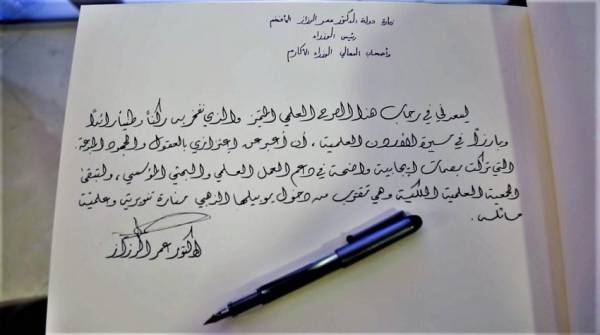 زيارة دولة الدكتور عمر الرزاز الأفخم
رئيس الوزراء
وأصحاب المعالي الوزراء الأكارم
يسعدني في رحاب هذا الصرح العلمي المتميز والذي نفخر به ركناً وطنياً رائداً
وبارزاً في مسيرة الأردن العلمية، أن أعبر عن اعتزازي بالعقول والجهود المبدعة
التي تركت بصمات إيجابية واضحة في دعم العمل العلمي والبحثي المؤسسي، ولتبقى
الجمعية العلمية الملكية وهي تقترب من دخول يوبيلها الذهبي منارة تنويرية وعلمية
الدكتور عمر الرزاز